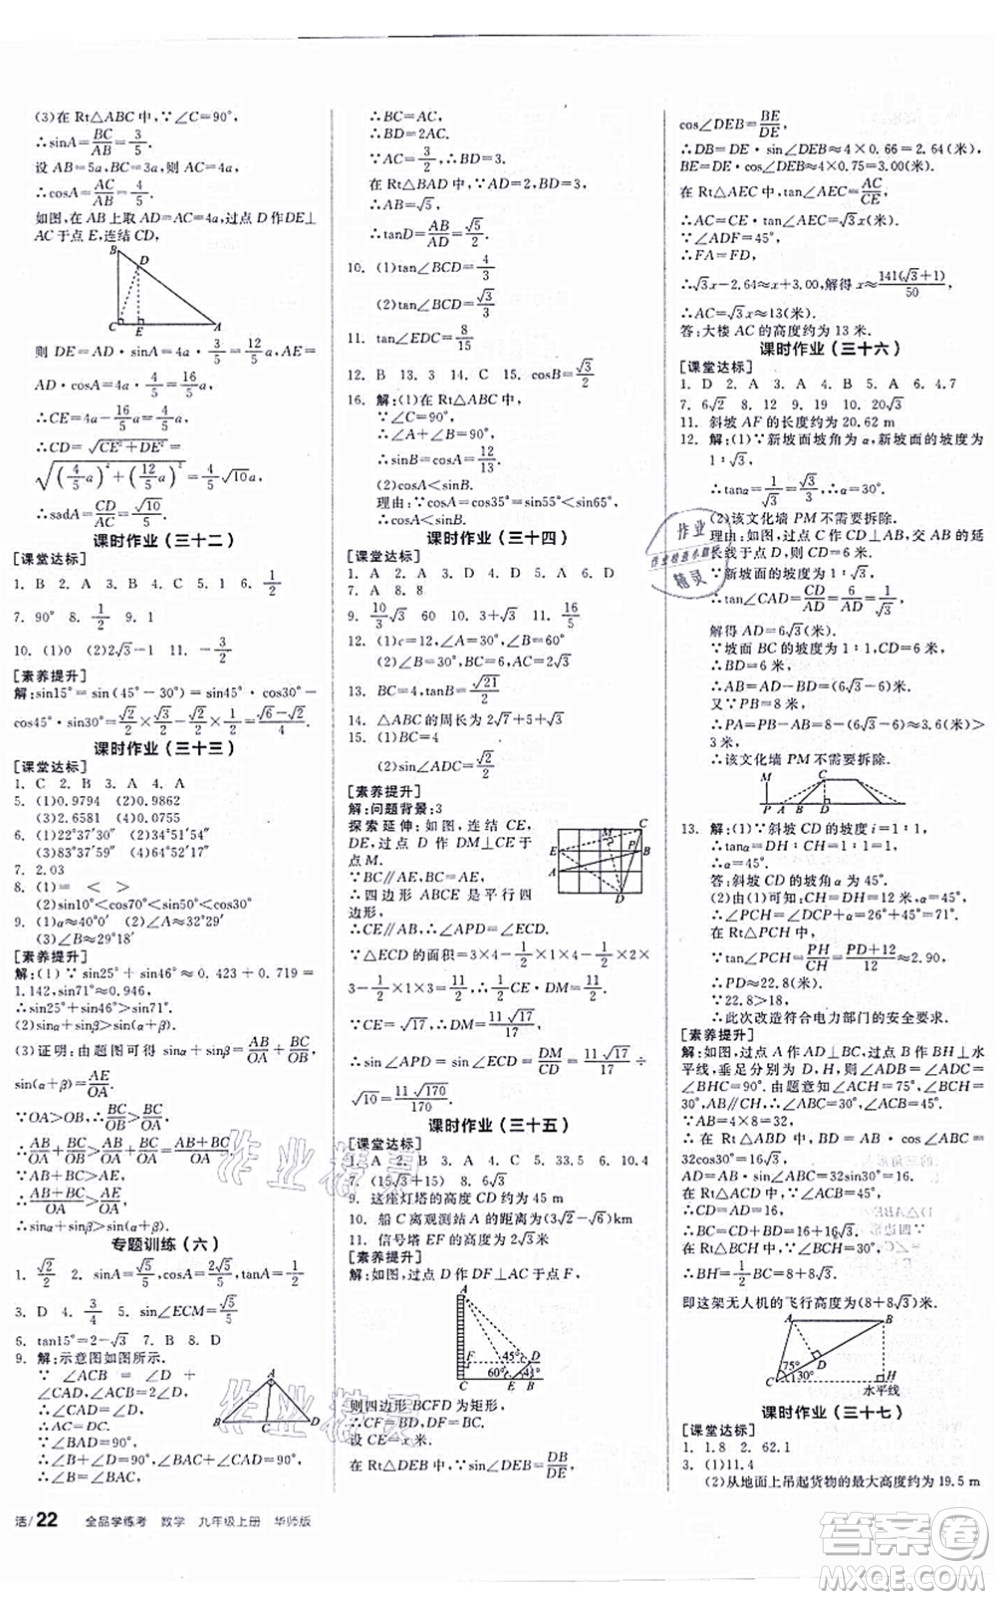 (3)在 Rt△ABC 中,∵∠C=90°,
∴sinA=BC/AB=3/5.
设 AB=5a,BC=3a,则 AC=4a,
∴cosA=AC/AB=4/5.
如图,在 AB 上取 AD=AC=4a,过点 D 作DE⊥
AC 于点 E,连结 CD,
B
D
C
E
A
则 DE=AD·sinA=4a·3/5=12/5a,AE=
AD·cosA=4a·4/5=16/5a,
∴CE=4a-16/5a=4/5a,
∴CD=√(CE²+DE²)=
√((4/5a)²+(12/5a)²)=4/5√10a,
∴sadA=CD/AC=√10/5.
课时作业(三十二)
[课堂达标]
1. B 2. B 3. A 4. C 5. 1 6. 1/2
7. 90° 8. 1/2 9. 1/2
10. (1)0 (2)2√3-1 11. -3/2
[素养提升]
解:sin15°=sin(45°-30°)=sin45°·cos30°-
cos45°·sin30°=√2/2×√3/2-√2/2×1/2=(√6-√2)/4.
课时作业(三十三)
[课堂达标]
1. C 2. A 3. A 4. A
5. (1)0.9794 (2)0.9862
(3)2.6581 (4)0.0755
6. (1)22°37′30″ (2)24°37′51″
(3)83°37′59″ (4)41°23′58″
7. 2.03
8. (1)= < >
(2)sin10°<cos70°<sin50°<sin70°
9. (1)α≈40°0′ (2)∠A≈32°29′
(3)∠B≈29°18′
[素养提升]
解:(1)∵sin25°+sin46°≈0.423+0.719=
1.142,sin71°≈0.946,
∴sin25°+sin46°>sin71°.
(2)sinα+sinβ>sin(α+β)
(3)证明:由题图可得 sinα+sinβ=AB/OA+BC/OB,
sin(α+β)=AE/OA.
∵OA>OB,∴BC/OB>BC/OA,
∴AB/OA+BC/OB>AB/OA+BC/OA=(AB+BC)/OA.
∵AB+BC>AE,
∴(AB+BC)/OA>AE/OA,
∴sinα+sinβ>sin(α+β).
专题训练(六)
1. √2/2 2. sinA=√5/5,cosA=2√5/5
3. D 4. 3/4 5. sin∠ECM=√5/5
6. tan15°=2-√3 7. B 8. D
9. 解:示意图如图所示.
∵∠ACD=∠B+
∠CAD,∠ACD=2∠B,
∴∠CAD=∠B,
∴AC=DC.
∵∠BAD=90°,
∴∠B+∠D=90°,∠BAC+∠CAD=90°,
∴∠D=∠BAC,
A
B
C
D
∴BC=AC,
∴BD=2AC.
∵AC=3/2,∴BD=3.
在 Rt△BAD 中,∵AD=2,
∴AB=√5,
∴tanD=AB/AD=√5/2.
10. (1)tan∠BCD=4/3
(2)tan∠BCD=√3/3
11. tan∠EDC=8/15
12. B 13. 3 14. C 15. cosB=√3/2
16. 解:(1)在 Rt△ABC 中,
∵∠C=90°,
∴∠A+∠B=90°,
∴cosA=sinB=12/13
(2)cosA<sinB
理由:∵cosA=cos35°=sin55°<sin65°,
∴cosA<sinB.
课时作业(三十四)
[课堂达标]
1. A 2. D 3. A 4. A 5. D 6. D
7. A 8. 8
9. 10/3√3 60 10. 3+√3 11. 16/5
12. (1)c=12,∠A=30°,∠B=60°
(2)∠B=60°,a=9,b=9√3
13. BC=4,tanB=√21/2
14. △ABC 的周长为 2√7+5√3+5
15. (1)BC=4
(2)sin∠ADC=√2/2
[素养提升]
解:问题背景:3
探索延伸:如图,连结 CE,
DE,过点 D 作 DM⊥CE 于
点 M.
∵BC∥AE,BC=AE,
∴四边形 ABCE 是平行四
边形,
∴CE∥AB,∴∠APD=∠ECD.
M
C
E
P
B
A
D
∵△ECD 的面积=3×4-1/2×1×4-1/2×2×
3-1/2×1×3=11/2=1/2CE·DM,
∵CE=√17,∴DM=11√17/17,
∴sin∠APD=sin∠ECD=DM/CD=11√17/17÷
√10=11√170/170.
课时作业(三十五)
[课堂达标]
1. A 2. D 3. A 4. C 5. 33.5 6. 10.4
7. (15√3+15) 8. 6√3
9. 这座灯塔的高度 CD 约为 45 m
10. 船 C 离观测站 A 的距离为(3√2-√6)km
11. 信号塔 EF 的高度为 2√3米
[素养提升]
解:如图,过点 D 作 DF⊥AC 于点 F,
A
F
45°
D
60°
41°
C
E
B
则四边形 BCFD 为矩形,
∴CF=BD,CB=FD.
设 CE=x 米.
在 Rt△DEB 中,∵sin∠DEB=DB/DE,
cos∠DEB=BE/DE,
∴DB=DE·sin∠DEB≈4×0.66=2.64(米),
BE=DE·cos∠DEB≈4×0.75=3.00(米).
在 Rt△AEC 中,tan∠AEC=AC/CE,
∴AC=CE·tan∠AEC=√3x(米).
∵∠ADF=45°,
∴FA=FD,
∴√3x-2.64≈x+3.00,解得 x≈141(√3+1)/50,
∴AC=√3x≈13(米).
答:大楼 AC 的高度约为 13 米.
课时作业(三十六)
[课堂达标]
1. D 2. A 3. A 4. A 5. A 6. 4.7
7. 6√2 8. 12 9. 19 10. 20√3
11. 斜坡 AF 的长度约为 20.62 m
12. 解:(1)∵新坡面坡角为 α,新坡面的坡度为
1∶√3,
∴tanα=1/√3=√3/3,∴α=30°.
(2)该文化墙 PM 不需要拆除.
理由:如图,过点 C 作 CD⊥AB,交 AB 的延
长线于点 D.
∵新坡面的坡度为 1∶√3,
∴tan∠CAD=CD/AD=6/AD=1/√3,
解得 AD=6√3(米).
∵坡面 BC 的坡度为 1∶1,
∴BD=6 米,
∴AB=AD-BD=(6√3-6)米.
又∵PB=8 米,
∴PA=PB-AB=8-(6√3-6)≈3.6(米)>
3 米,
∴该文化墙 PM 不需要拆除.
M
C
P
A
B
D
13. 解:(1)∵斜坡 CD 的坡度 i=1∶1,
∴tanα=1∶1=1,
∴α=45°.
答:斜坡 CD 的坡角 α 为 45°.
(2)由(1)可知:CH=DH=12,α=45°.
∴∠PCH=∠DCP+α=26°+45°=71°.
在 Rt△PCH 中,
∵tan∠PCH=PH/CH=(PD+12)/12≈2.90,
∴PD=22.8(米).
∵22.8>18,
∴此次改造符合电力部门的安全要求.
[素养提升]
解:如图,过点 A 作 AD⊥BC,过点 B 作 BH⊥水
平线,垂足分别为 D,H,则∠ADB=∠ADC=
∠BHC=90°.由题意知∠ACH=75°,∠BCH=
30°,AB∥CH,∴∠ABC=30°,∠ACD=45°.
∵AB=4×8=32(米),
∴在 Rt△ADB 中,BD=AB·cos∠ABD=
32cos30°=16√3(米),
AD=AB·sin∠ABD=32sin30°=16(米).
在 Rt△ACD 中,CD=AD/tan45°=16(米),
∴BC=CD+BD=(16+16√3)米.
在 Rt△BCH 中,∵∠BCH=30°,
∴BH=1/2BC=(8+8√3)米,
即这架无人机的飞行高度为(8+8√3)米.
A
B
75°
D
30°
C
H
水平线
课时作业(三十七)
[课堂达标]
1. 1.8 2. 62.1
3. (1)11.4
(2)从地面上吊起货物的最大高度约为 19.5 m
活/22 全品学练考 数学 九年级上册 华师版
作业
作业检查小助手
精灵
作业精灵
作业精灵
答案圈
MXQE.COM